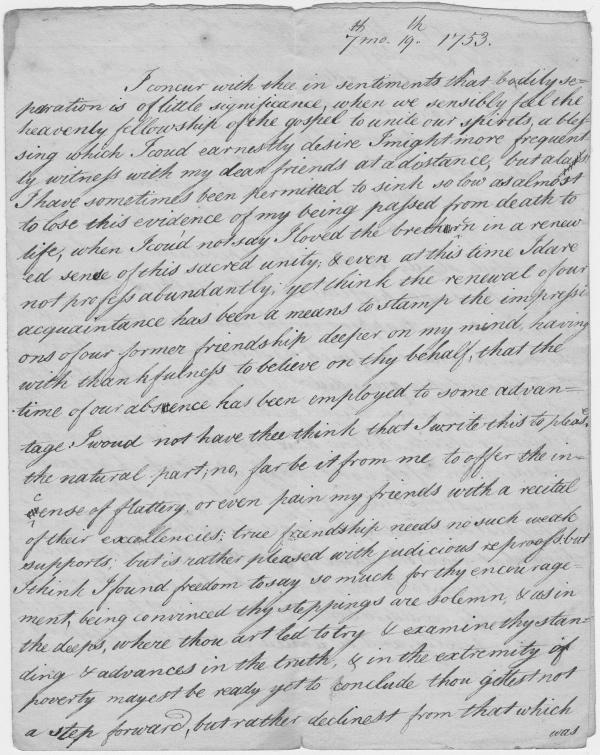 7th mo. 19th 1753.
I concur with thee in sentiments that bodily se=
paration is of little significance, when we sensibly fell the
heavenly fellowship of the gospel to unite our spirits, a bles
sing which I coud earnestly desire I might more frequent
ly witness with my dear friends at a distance, but alas
I have sometimes been permitted to sink so low as almost
to lose this evidence of my being passed from death to
life, when I coud not say I loved the brethern in a renew
ed sense of this sacred unity; & even at this time I dare
not profess abundantly, yet think the renewal of our
acquaintance has been a means to stamp the impressi
ons of our former friendship deeper on my mind, having
with thankfulness to believe on thy behalf, that the
time of our absence has been employed to some advan=
tage: I woud not have thee think that I write this to please,
the natural part, no, far be it from me to offer the in=
cense of flattery, or even pain my friends with a recital
of their excellencies; true friendship needs no such weak
supports; but is rather pleased with judicious reproofs: but
I think I found freedom to say so much for thy encourage=
ment, being convinced thy steppings are solemn, & as in
the deeps, where thou art led to try & examine thy stan=
ding & advances in the truth, & in the extremity of
poverty mayest be ready yet to conclude thou gettest not
a step forward, but rather declinest from that which
was